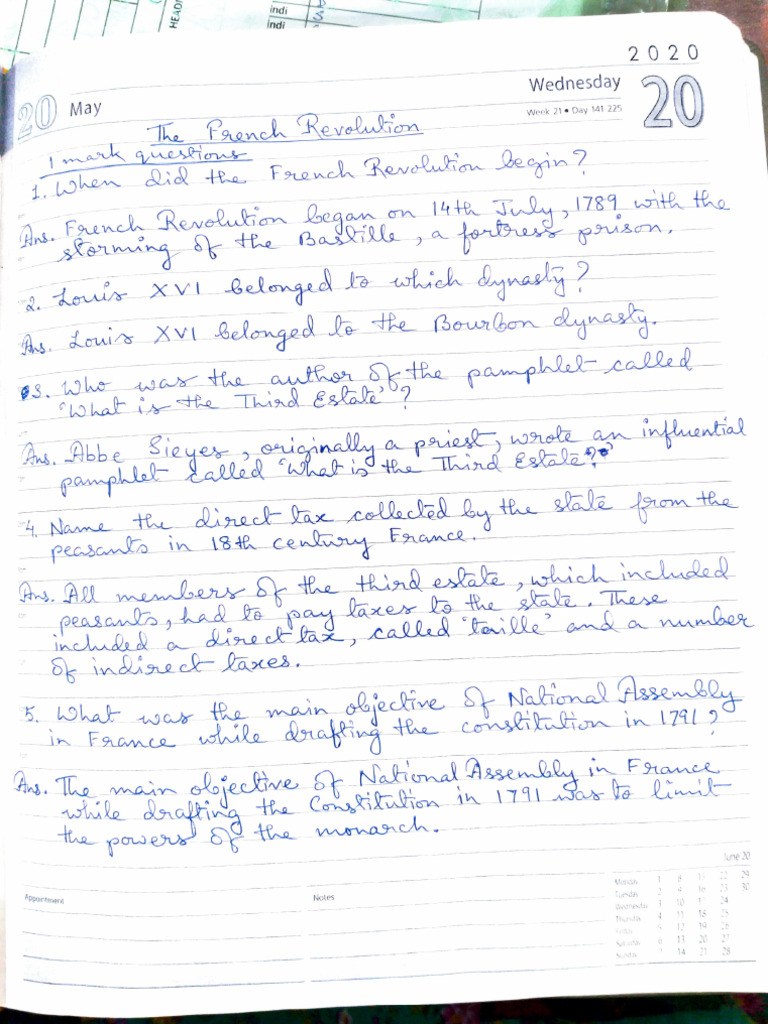 HEAD
indi
indi
2020
20 May
Wednesday
Week 21 • Day 141-225
20
The French Revolution
1 mark questions
1. When did the French Revolution begin?
Ans. French Revolution began on 14th July, 1789 with the
storming of the Bastille, a fortress prison.
2. Louis XVI belonged to which dynasty?
Ans. Louis XVI belonged to the Bourbon dynasty.
3. Who was the author of the pamphlet called
'What is the Third Estate'?
Ans. Abbe Sieyes, originally a priest, wrote an influential
pamphlet called 'What is the Third Estate?'
4. Name the direct tax collected by the state from the
peasants in 18th century France.
Ans. All members of the third estate, which included
peasants, had to pay taxes to the state. These
included a direct tax, called 'taille' and a number
of indirect taxes.
5. What was the main objective of National Assembly
in France while drafting the constitution in 1791?
Ans. The main objective of National Assembly in France
while drafting the Constitution in 1791 was to limit
the powers of the monarch.
Appointment
Notes
June 20
Monday 1 8 15 22 29
Tuesday 2 9 16 23 30
Wednesday 3 10 17 24
Thursday 4 11 18 25
Friday 5 12 19 26
Saturday 6 13 20 27
Sunday 7 14 21 28